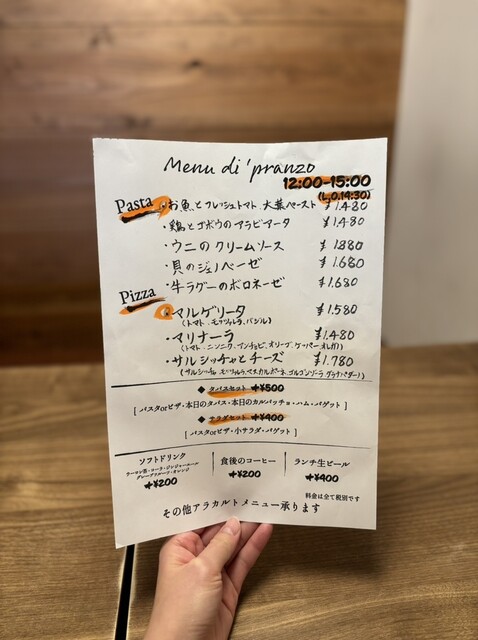 Menu di 'pranzo
12:00-15:00
(L.O.14:30)
Pasta
・お魚とフレッシュトマト、大葉ペースト ¥1.480
・鶏とゴボウのアラビアータ ¥1.480
・ウニのクリームソース ¥1880
・貝のジェノベーゼ ¥1.680
・牛ラグーのボロネーゼ ¥1.680
Pizza
・マルゲリータ ¥1.580
(トマト、モッツァレラ、バジル)
・マリナーラ ¥1.480
(トマト、ニンニク、アンチョビ、オリーブ、ケッパー、オレガノ)
・サルシッチャとチーズ ¥1.780
(サルシッチャ、モッツァレラ、マスカルポーネ、ゴルゴンゾーラ、グラナパダーノ)
◆ タパスセット +¥500
[ パスタorピザ・本日のタパス・本日のカルパッチョ・ハム・バゲット ]
◆ サラダセット +¥400
[ パスタorピザ・小サラダ・バゲット ]
ソフトドリンク
ウーロン茶・コーラ・ジンジャーエール
グレープフルーツ・オレンジ
+¥200
食後のコーヒー
+¥200
ランチ生ビール
+¥400
料金は全て税別です
その他アラカルトメニュー承ります